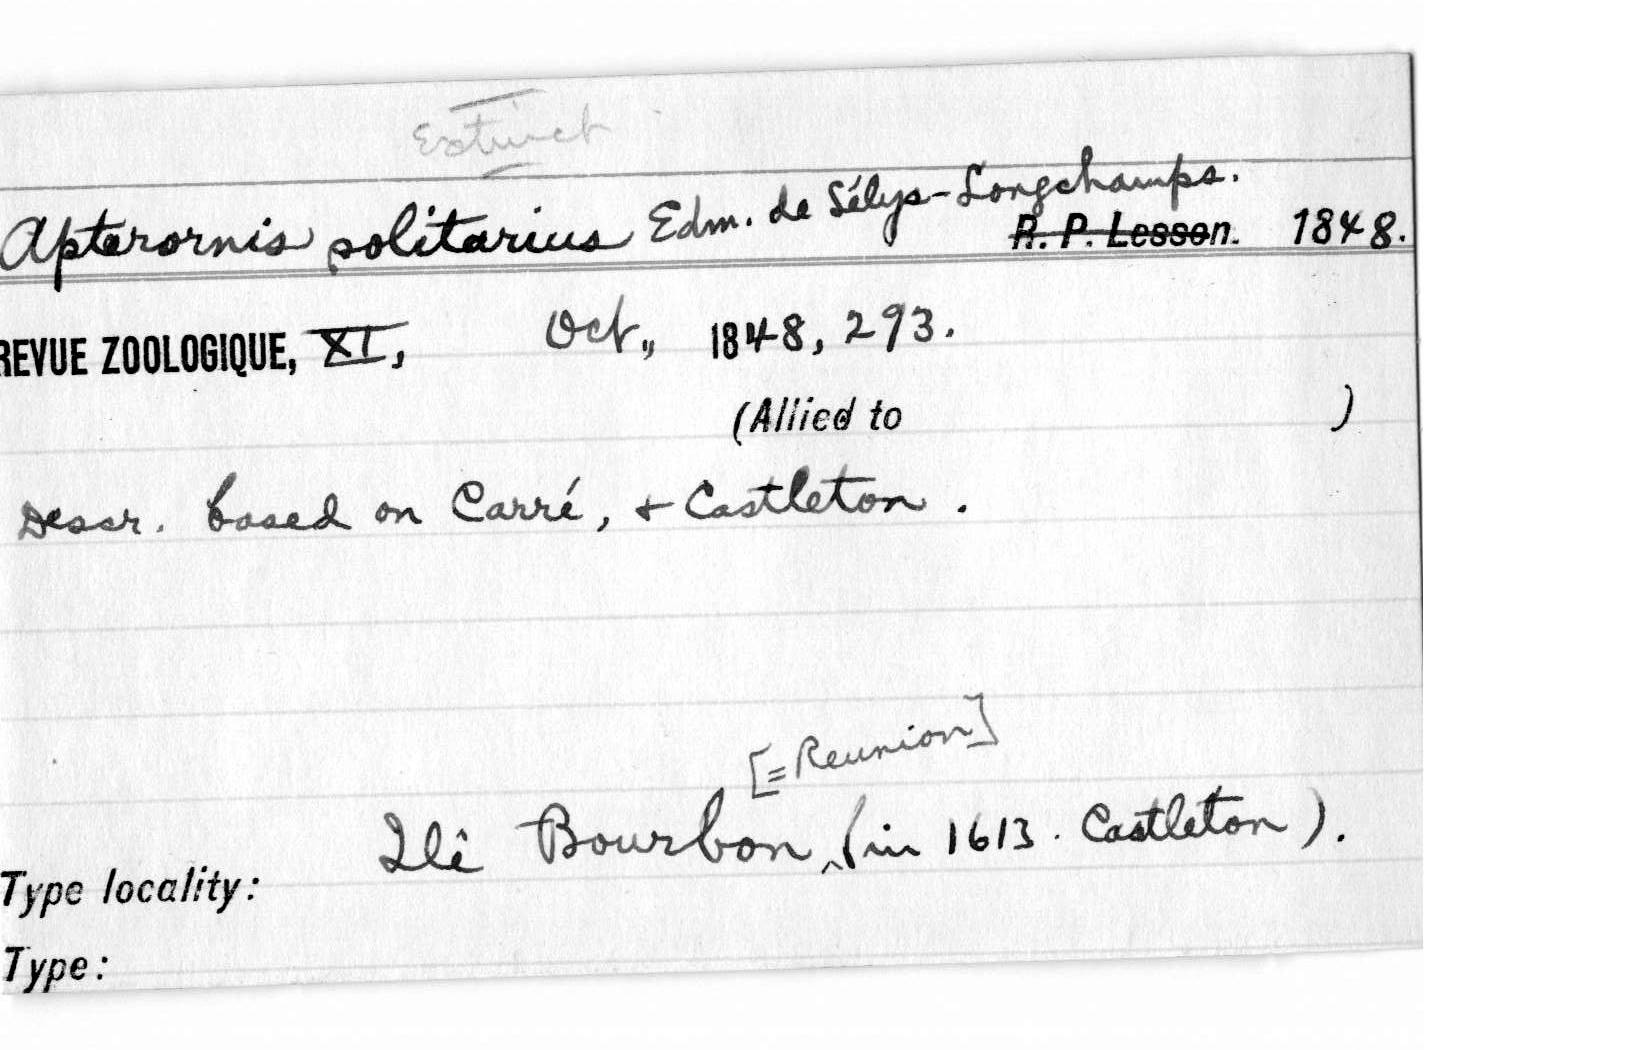 Extinct
Apterornis solitarius Edm. de Sélys-Longchamps.
R. P. Lesson. 1848.
REVUE ZOOLOGIQUE, XI, Oct., 1848, 293.
(Allied to )
Descr. based on Carré, + Castleton.
[= Reunion]
Ilê Bourbon, (in 1613. Castleton).
Type locality:
Type: